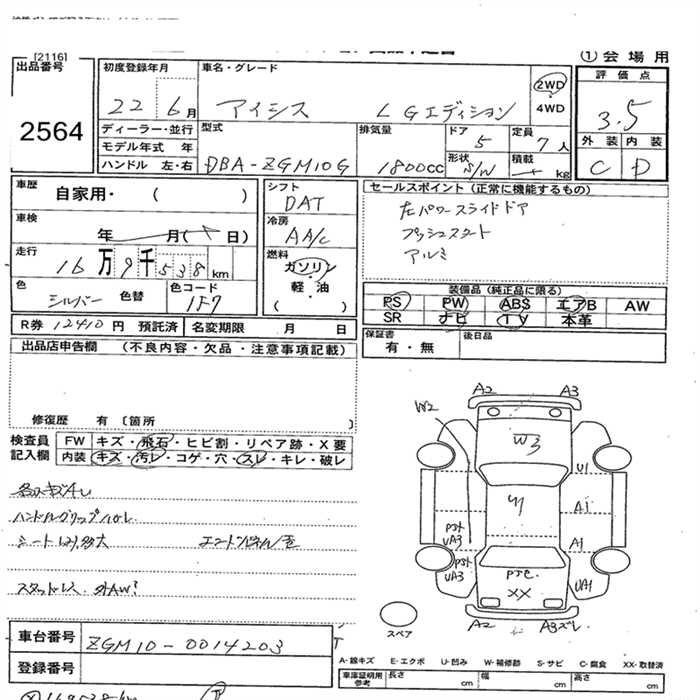 [2116]
① 会 場 用
出品番号
2564
初度登録年月
22 6月
車名・グレード
アイシス L Gエディション
2WD
4WD
評 価 点
3.5
ディーラー・並行
モデル年式 年
ハンドル 左・右
型式
DBA-ZGM10G
排気量
1800cc
ドア
5
定員
7人
形状
S/W
積載
kg
外 装 内 装
C D
車歴
自家用・ ( )
車検
年 月( 日)
走行
16万9千538km
色
シルバー 色替
色コード
1F7
シフト
DAT
冷房
AA/C
燃料
ガソリン
軽・油
( )
セールスポイント (正常に機能するもの)
左パワースライドドア
プッシュスタート
アルミ
装備品 (純正品に限る)
PS PW ABS エアB AW
SR ナビ TV 本革
R券 12410 円 預託済 名変期限 月 日
保証書
有・無
後日品
出品店申告欄 (不良内容・欠品・注意事項記載)
修復歴 有 〔箇所 〕
検査員
記入欄
FW キズ・飛石・ヒビ割・リペア跡・X要
内装 キズ・汚レ・コゲ・穴・スレ・キレ・破レ
ハンドルグリップハガレ
スタッドレス
A2 A3
W2
W3
U1
A1
UA3
A1
UA3
UA1
XX
A2 A3ズレ
スペア
車台番号
ZGM10-0014203
登録番号
A-線キズ E-エクボ U-凹み W-補修跡 S-サビ C-腐食 XX-取替済
車庫証明用
参考
長さ cm 幅 cm 高さ cm